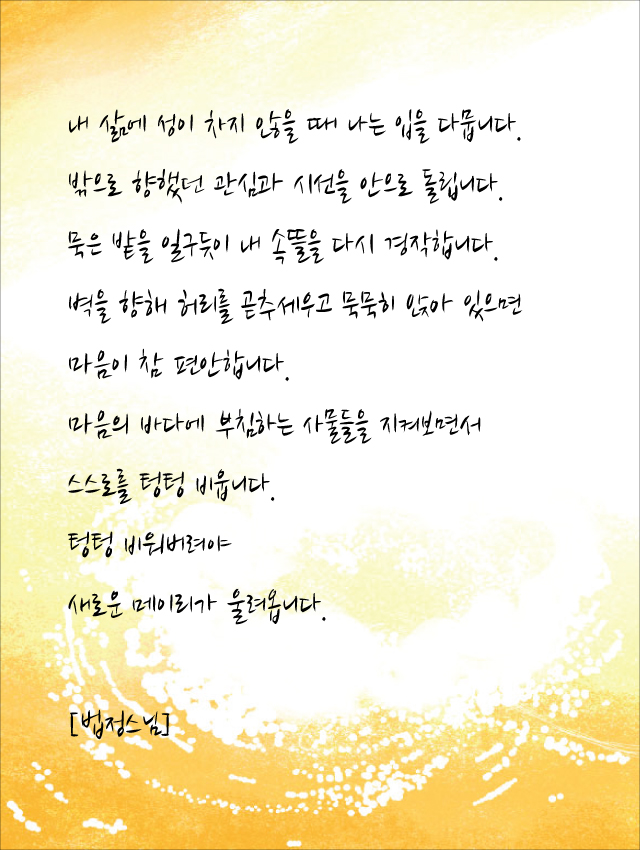 내 삶에 성이 차지 않을 때 나는 입을 다뭅니다.
밖으로 향했던 관심과 시선을 안으로 돌립니다.
묵은 밭을 일구듯이 내 속뜰을 다시 경작합니다.
벽을 향해 허리를 곧추세우고 묵묵히 앉아 있으면
마음이 참 편안합니다.
마음의 바다에 부침하는 사물들을 지켜보면서
스스로를 텅텅 비웁니다.
텅텅 비워버려야
새로운 메이리가 울려옵니다.
[법정스님]